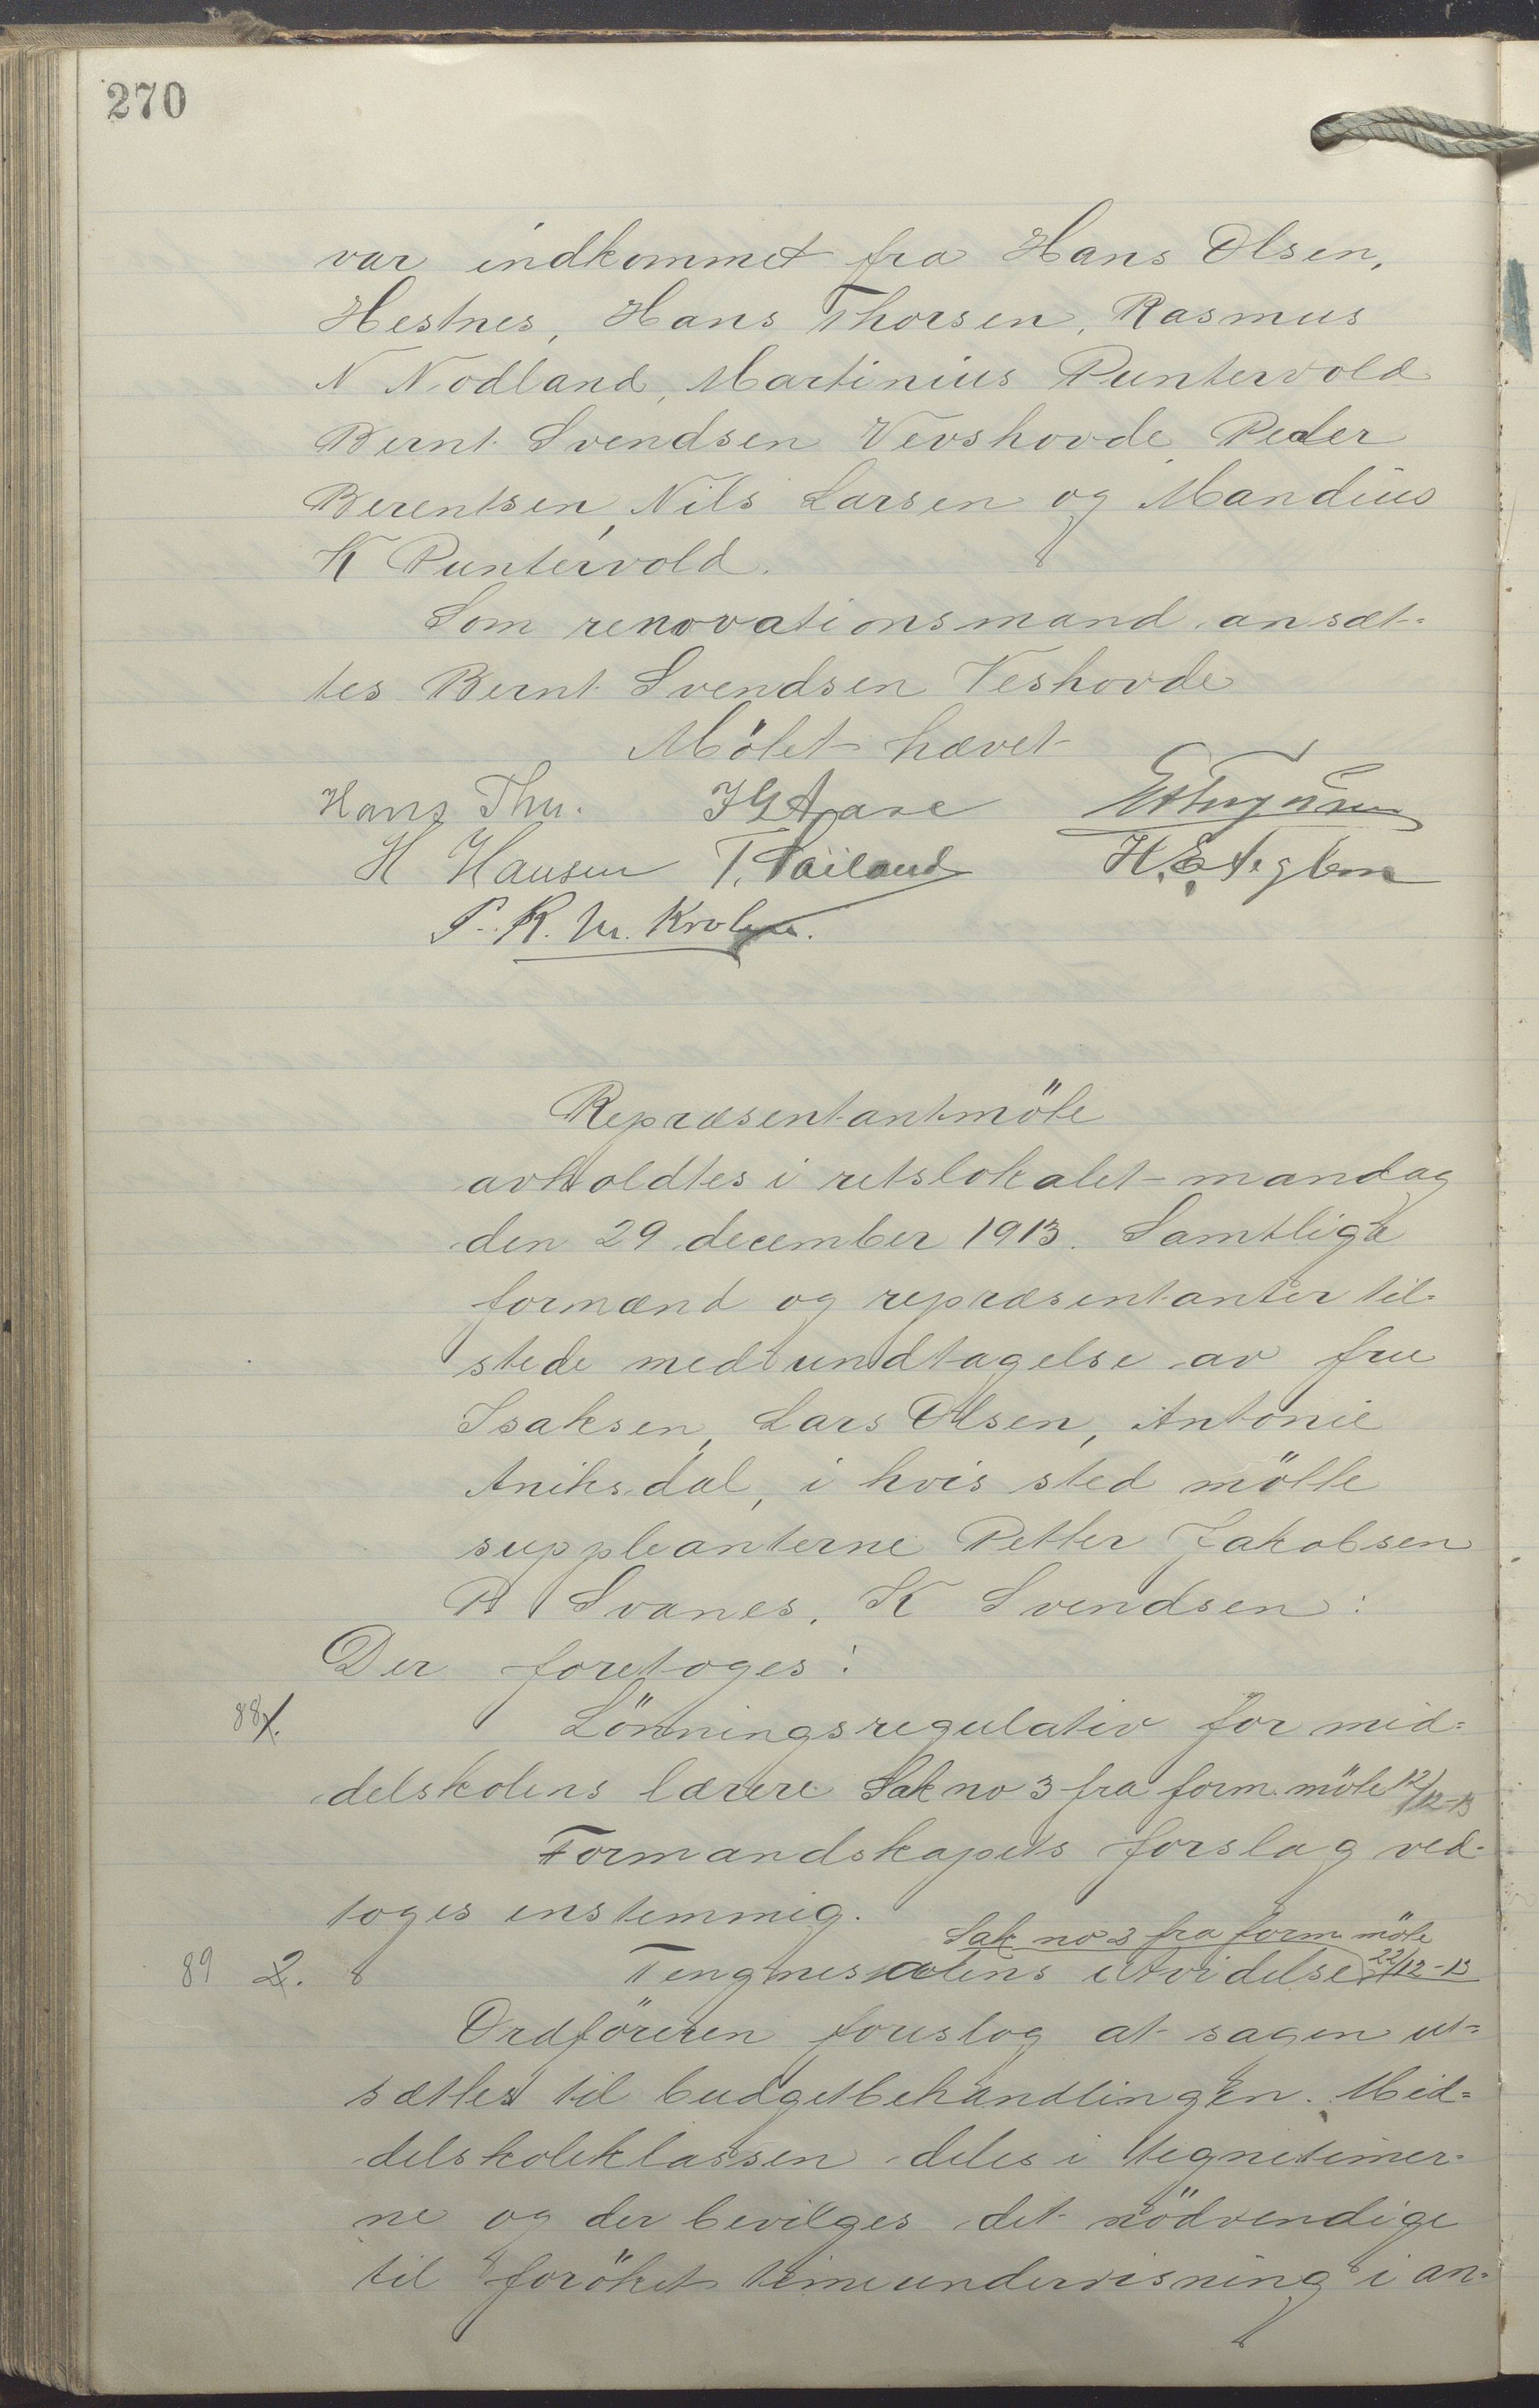 270
var indkommet fra Hans Olsen,
Hestnes, Hans Thorsen, Rasmus
N Nodland, Martinius Puntervold
Bernt Svendsen Vevshovde, Peder
Berentsen, Nils Larsen og Mandius
K Puntervold.
Som renovationsmand ansæt-
tes Bernt Svendsen Veshovde
Mötet hævet
Hans Thu. J G Aase
H Hansen T. Sailand
P. R. M.
Repræsentantmöte
avholdtes i retslokalet mandag
den 29 december 1913. Samtlige
formænd og repræsentanter til-
stede med undtagelse av fru
Isaksen, Lars Olsen, Antonie
Aniksdal, i hvis sted mötte
suppleanterne Petter Jakobsen
P Svanes, K Svendsen:
Der foretoges:
88 1. Lönningsregulativ for mid-
delskolens lærere Sak no 3 fra form. möte 12/12-13
Formandskapets forslag ved-
toges enstemmig.
Sak no 3 fra form. möte
89 2. Tengnesskolens utvidelse 22/12-13
Ordföreren foreslog at sagen ut-
sættes til budgetbehandlingen. Mid-
delskoleklassen deles i tegnetimer-
ne og der bevilges det nödvendige
til foröket timeundervisning i an-